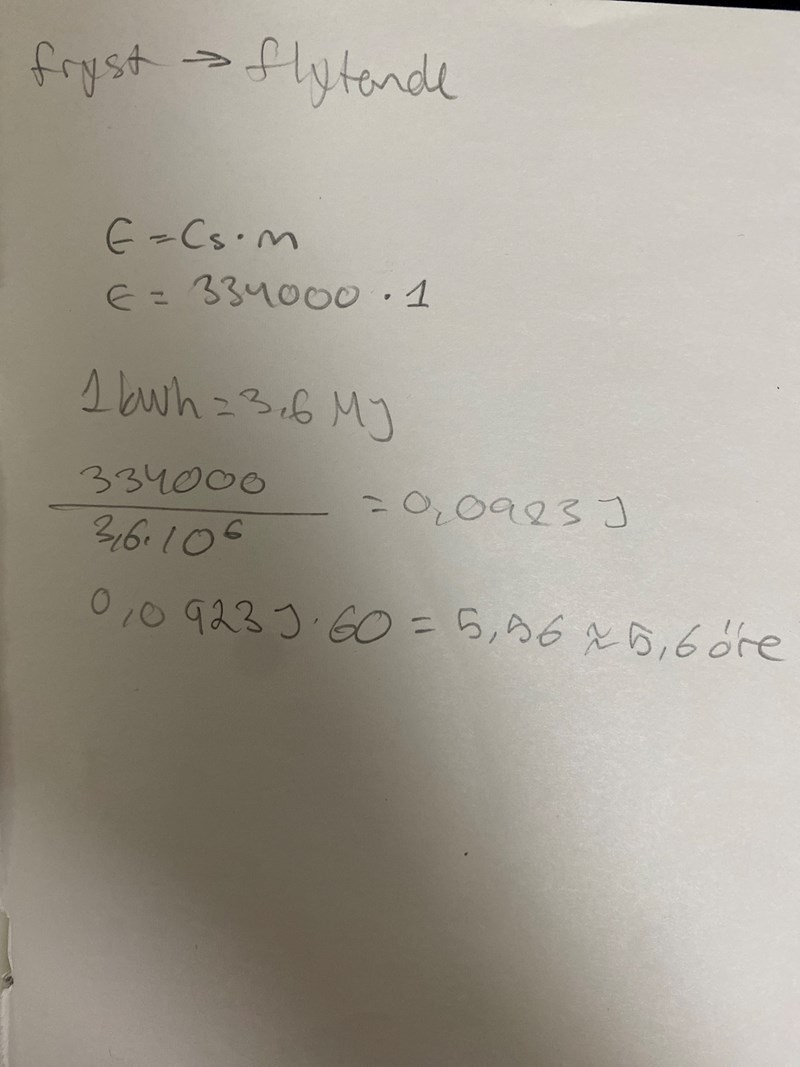 fryst → flytande
E = Cs · m
E = 334000 · 1
1 kwh = 3,6 MJ
334000
3,6·10⁶
= 0,0923 J
0,0923 J · 60 = 5,56 ≈ 5,6 öre